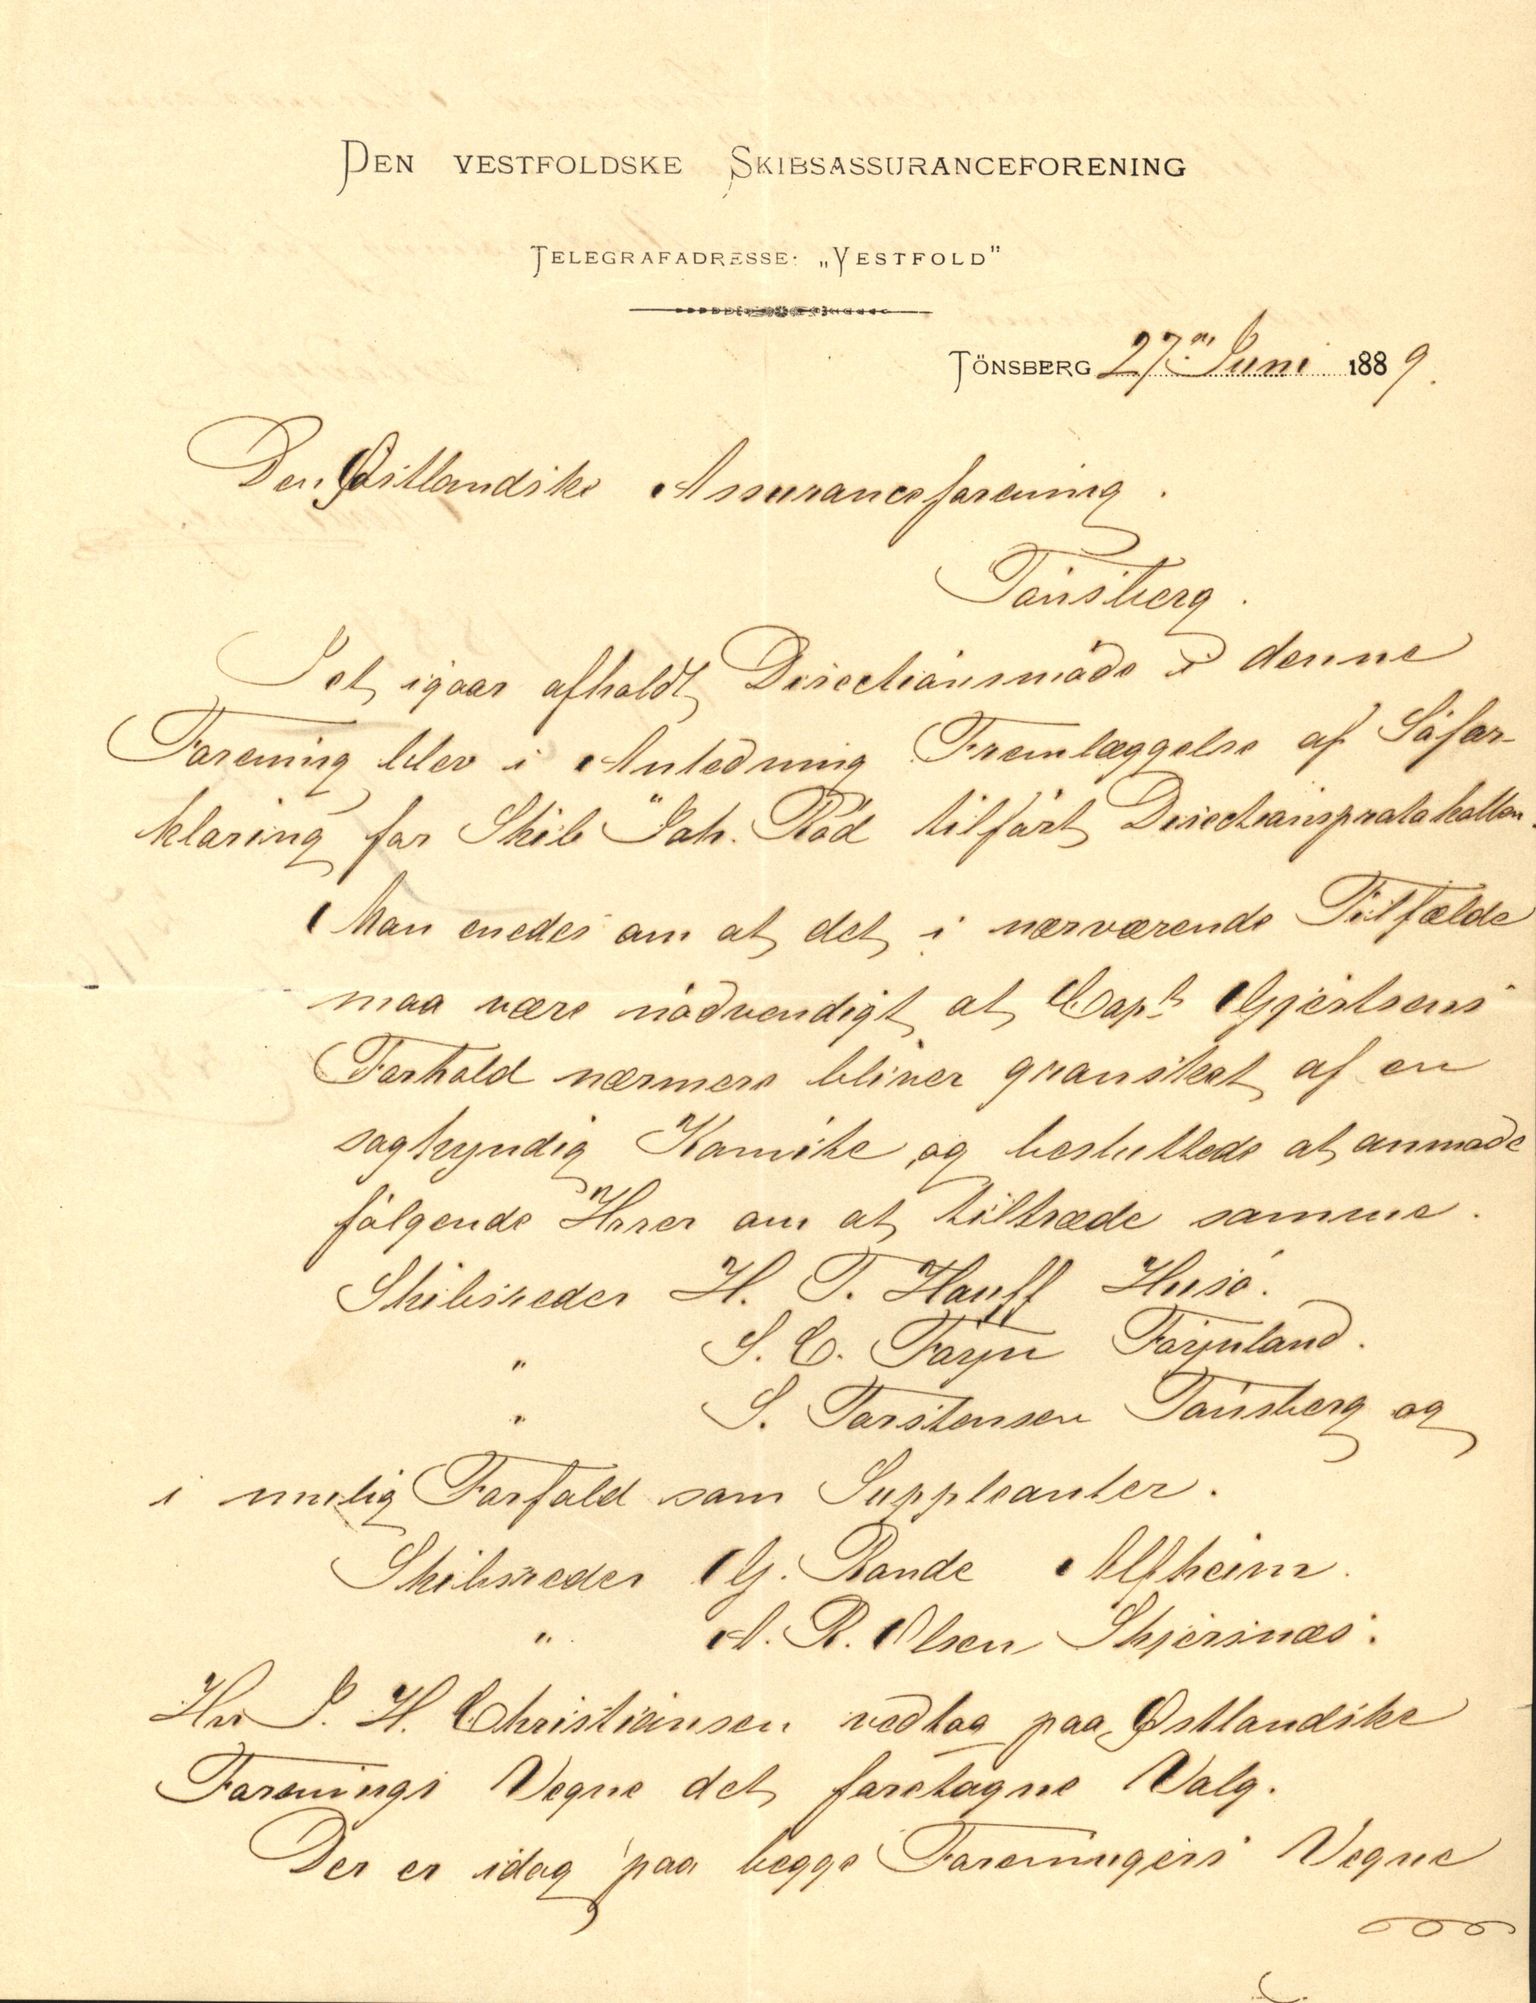 DEN VESTFOLDSKE SKIBSASSURANCEFORENING
TELEGRAFADRESSE: „VESTFOLD"
TÖNSBERG 27de Juni 1889.
Den Østlandske Assuranceforening.
Tönsberg.
I et igaar afholdt Directionsmöde i denne
Forening blev i Anledning Fremlæggelse af Söfor-
klaring for Skib "Joh. Rød tilført Directionsprotokollen.
Man enedes om at det i nærværende Tilfælde
maa være nödvendigt at Capt Gjertsens
Forhold nærmere bliver gransket af en
sagkyndig Komite og besluttede at anmode
fölgende Hrrer om at tiltræde samme.
Skibsreder H. T. Hauff Husö.
" S. C. Föyn Föynland.
" S. Torstensen Tönsberg og
i mulig Forfald som Suppleanter.
Skibsreder G. Bonde Alfheim.
" A. R. Olsen Skjersnæs.
Hr J. H. Christiansen vedtog paa Østlandske
Forenings Vegne det foretagne Valg.
Der er idag paa begge Foreningers Vegne